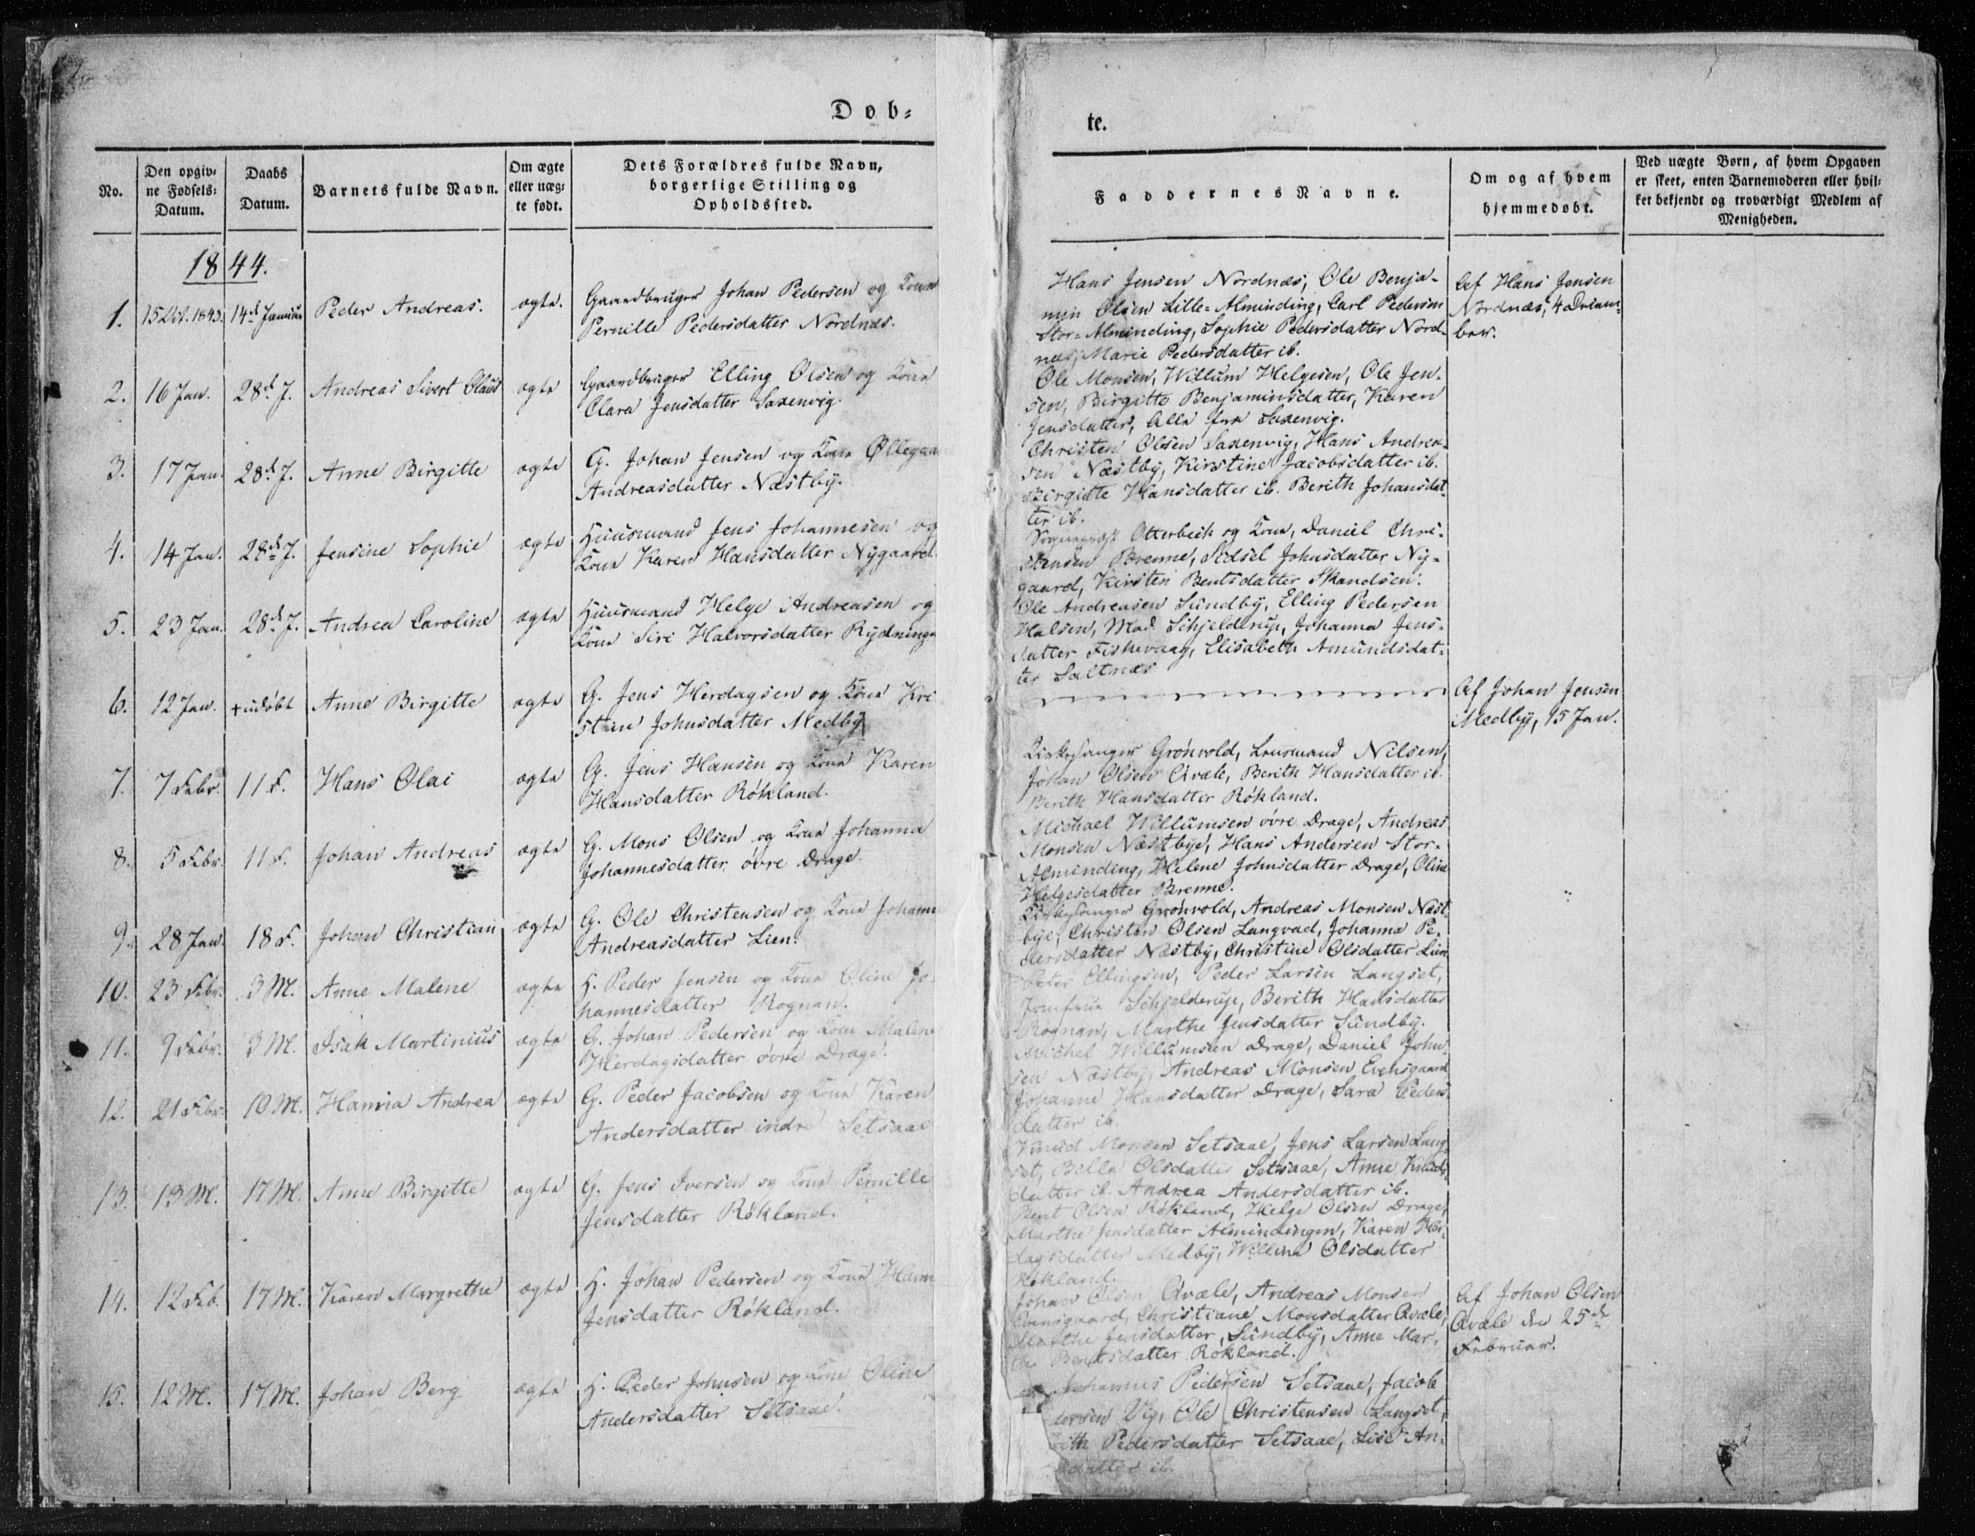 Døb-
No.
Den opgiv-
ne Fødsels-
Datum.
Daabs
Datum.
Barnets fulde Navn.
Om ægte
eller uæg-
te født.
Dets Forældres fulde Navn,
borgerlige Stilling og
Opholdssted.
1844.
1. 15 Oct. 1843. 14d Januar Peder Andreas. ægte. Gaardbruger Johan Pedersen og Kone
Pernille Pedersdatter Nordnæs.
2. 16 Jan. 28d J. Andreas Sivert Olaus ægte Gaardbruger Elling Olsen og Kone
Clara Jensdatter Saxenvig.
3. 17 Jan. 28d J. Anne Birgitte ægte G. Johan Jensen og Kone Øllegaa
Andreasdatter Næstby.
4. 14 Jan. 28d J. Jensine Sophie ægte Huusmand Jens Johannesen og
Kone Karen Hansdatter Nygaard
5. 23 Jan. 28d J. Andrea Caroline ægte Huusmand Helge Andreasen og
Kone Siri Halvorsdatter Rydninge
6. 12 Jan. + udøbt Anne Birgitte ægte G. Jens Herdagsen og Kone Kri
stine Johnsdatter Medby
7. 7 Febr. 11 F. Hans Olai ægte G. Jens Hansen og Kone Karen
Hansdatter Røkland.
8. 5 Febr. 11 F. Johan Andreas ægte G. Mons Olsen og Kone Johanna
Johannesdatter øvre Drage.
9. 28 Jan. 18 F. Johan Christian ægte G. Ole Christensen og Kone Johanne
Andreasdatter Lien.
10. 23 Febr. 3 M. Anne Malene ægte H. Peder Jensen og Kone Oline Jo-
hannesdatter Rognan.
11. 9 Febr. 3 M. Isak Martinius ægte G. Johan Pedersen og Kone Malene
Herdagsdatter øvre Drage.
12. 21 Febr. 10 M. Hanna Andrea ægte G. Peder Jacobsen og Kone Karen
Andersdatter indre Setsaae
13. 13 M. 17 M. Anne Birgitte ægte G. Jens Iversen og Kone Pernille
Jensdatter Røkland.
14. 12 Feb. 17 M. Karen Margrethe ægte H. Johan Pedersen og Kone Hann
Jensdatter Røkland.
15. 12 M. 17 M. Johan Berg ægte H. Peder Johnsen og Kone Oline
Andersdatter Setsaae.
te.
Faddernes Navne.
Om og af hvem
hjemmedøbt.
Ved uægte Børn, af hvem Opgaven
er skeet, enten Barnemoderen eller hvil-
ket bekjendt og troværdigt Medlem af
Menigheden.
Hans Jensen Nordnæs, Ole Benja-
min Olsen Lille-Alminding, Carl Pedersen
Stor-Alminding, Sophie Pedersdatter Nord-
næs, Marie Pedersdatter ib.
Af Hans Jensen
Nordnæs, 4 Decem-
ber.
Ole Monsen, Willum Helgesen, Ole Jen-
sen, Birgitte Benjaminsdatter, Karen
Jensdatter, Alle fra Saxenvig.
Christen Olsen Saxenvig, Hans Andrea-
sen Næstby, Kirstine Jacobsdatter ib.
Birgitte Hansdatter ib. Berith Johansdat-
ter ib.
Sognepræst Otterbech og Kone, Daniel Chri-
stensen Brenne, Sidsel Johnsdatter Ny-
gaard, Kirsten Bentsdatter
Ole Andreasen Sundby, Elling Pedersen
Halsen, Mad. Schjelderup, Johanna Jens-
datter Fiskevaag, Elisabeth Amundsdat-
ter Saltnæs
Af Johan Jensen
Medby, 15 Jan.
Kirkesanger Grønvold, Lensmand Nilsen,
Johan Olsen Qvæle, Berith Hansdatter ib.
Berith Hansdatter Røkland.
Michael Willumsen øvre Drage, Andreas
Monsen Næstbye, Hans Andersen Stor-
Alminding, Helene Johnsdatter Drage, Oline
Helgesdatter Brenne.
Kirkesanger Grønvold, Andreas Monsen Næst-
bye, Christen Olsen Langvad, Johanna Pe-
dersdatter Næstby, Christine Olsdatter Lien
Peter Ellingsen, Peder Larsen Langset,
Jomfrue Schjelderup, Berith Hansdatter
Rognan, Marthe Jensdatter Sundby.
Michel Willumsen Drage, Daniel John-
sen Næstby, Andreas Monsen Evensgaard
Johanne Hansdatter Drage, Sara Peders
datter ib.
Knud Monsen Setsaae, Jens Larsen Lang
set, Bille Olsdatter Setsaae, Anne Knuds
datter ib. Andrea Andersdatter ib.
Bent Olsen Røkland, Helge Olsen Drage,
Marthe Jensdatter Almindingen, Karen Her
dagsdatter Medby, Willine Olsdatter
Røkland.
Johan Olsen Qvæle, Andreas Monsen
Evensgaard, Christiane Monsdatter Qvæle,
Marthe Jensdatter Sundby, Anne Mar-
the Bentsdatter Røkland.
Af Johan Olsen
Qvæle den 25de
Februar.
Johannes Pedersen Setsaae, Jacob
dersen Vig, Ole Christensen Langset,
rith Pedersdatter Setsaae, Lise An-
datter ib.